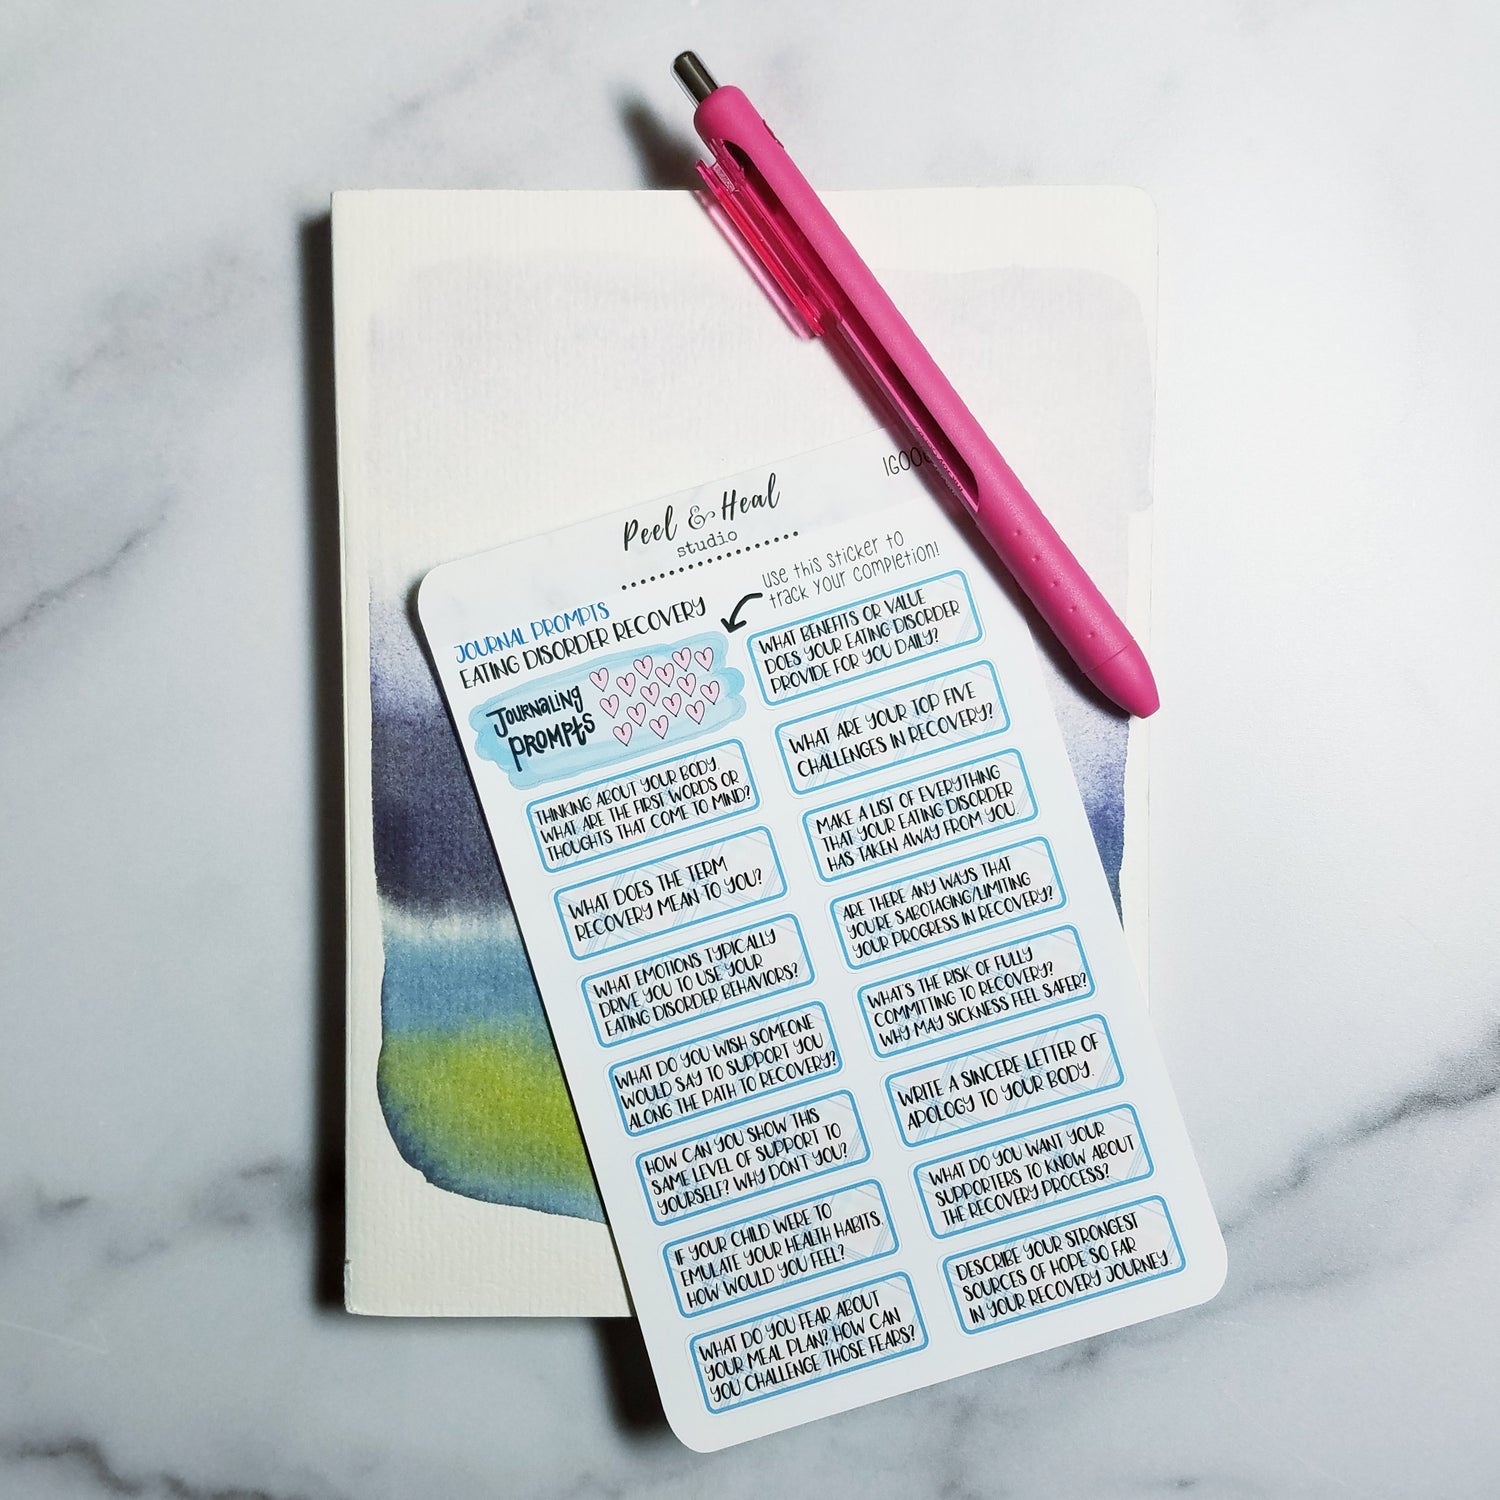 Peel & Heal
studio
USE THIS STICKER TO
TRACK YOUR COMPLETION!
JOURNAL PROMPTS
EATING DISORDER RECOVERY
JOURNALING
PROMPTS
THINKING ABOUT YOUR BODY
WHAT ARE THE FIRST WORDS OR
THOUGHTS THAT COME TO MIND?
WHAT DOES THE TERM
RECOVERY MEAN TO YOU?
WHAT EMOTIONS TYPICALLY
DRIVE YOU TO USE YOUR
EATING DISORDER BEHAVIORS?
WHAT DO YOU WISH SOMEONE
WOULD SAY TO SUPPORT YOU
ALONG THE PATH TO RECOVERY?
HOW CAN YOU SHOW THIS
SAME LEVEL OF SUPPORT TO
YOURSELF? WHY DON'T YOU?
IF YOUR CHILD WERE TO
EMULATE YOUR HEALTH HABITS,
HOW WOULD YOU FEEL?
WHAT DO YOU FEAR ABOUT
YOUR MEAL PLAN? HOW CAN
YOU CHALLENGE THOSE FEARS?
WHAT BENEFITS OR VALUE
DOES YOUR EATING DISORDER
PROVIDE FOR YOU DAILY?
WHAT ARE YOUR TOP FIVE
CHALLENGES IN RECOVERY?
MAKE A LIST OF EVERYTHING
THAT YOUR EATING DISORDER
HAS TAKEN AWAY FROM YOU.
ARE THERE ANY WAYS THAT
YOU'RE SABOTAGING/LIMITING
YOUR PROGRESS IN RECOVERY?
WHAT'S THE RISK OF FULLY
COMMITTING TO RECOVERY?
WHY MAY SICKNESS FEEL SAFER?
WRITE A SINCERE LETTER OF
APOLOGY TO YOUR BODY.
WHAT DO YOU WANT YOUR
SUPPORTERS TO KNOW ABOUT
THE RECOVERY PROCESS?
DESCRIBE YOUR STRONGEST
SOURCES OF HOPE SO FAR
IN YOUR RECOVERY JOURNEY.